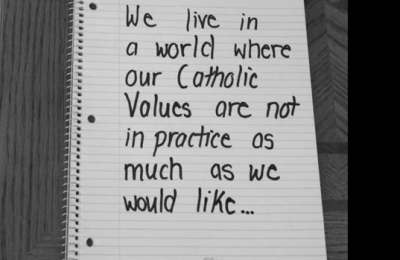 We live in
a world where
our Catholic
Values are not
in practice as
much as we
would like...